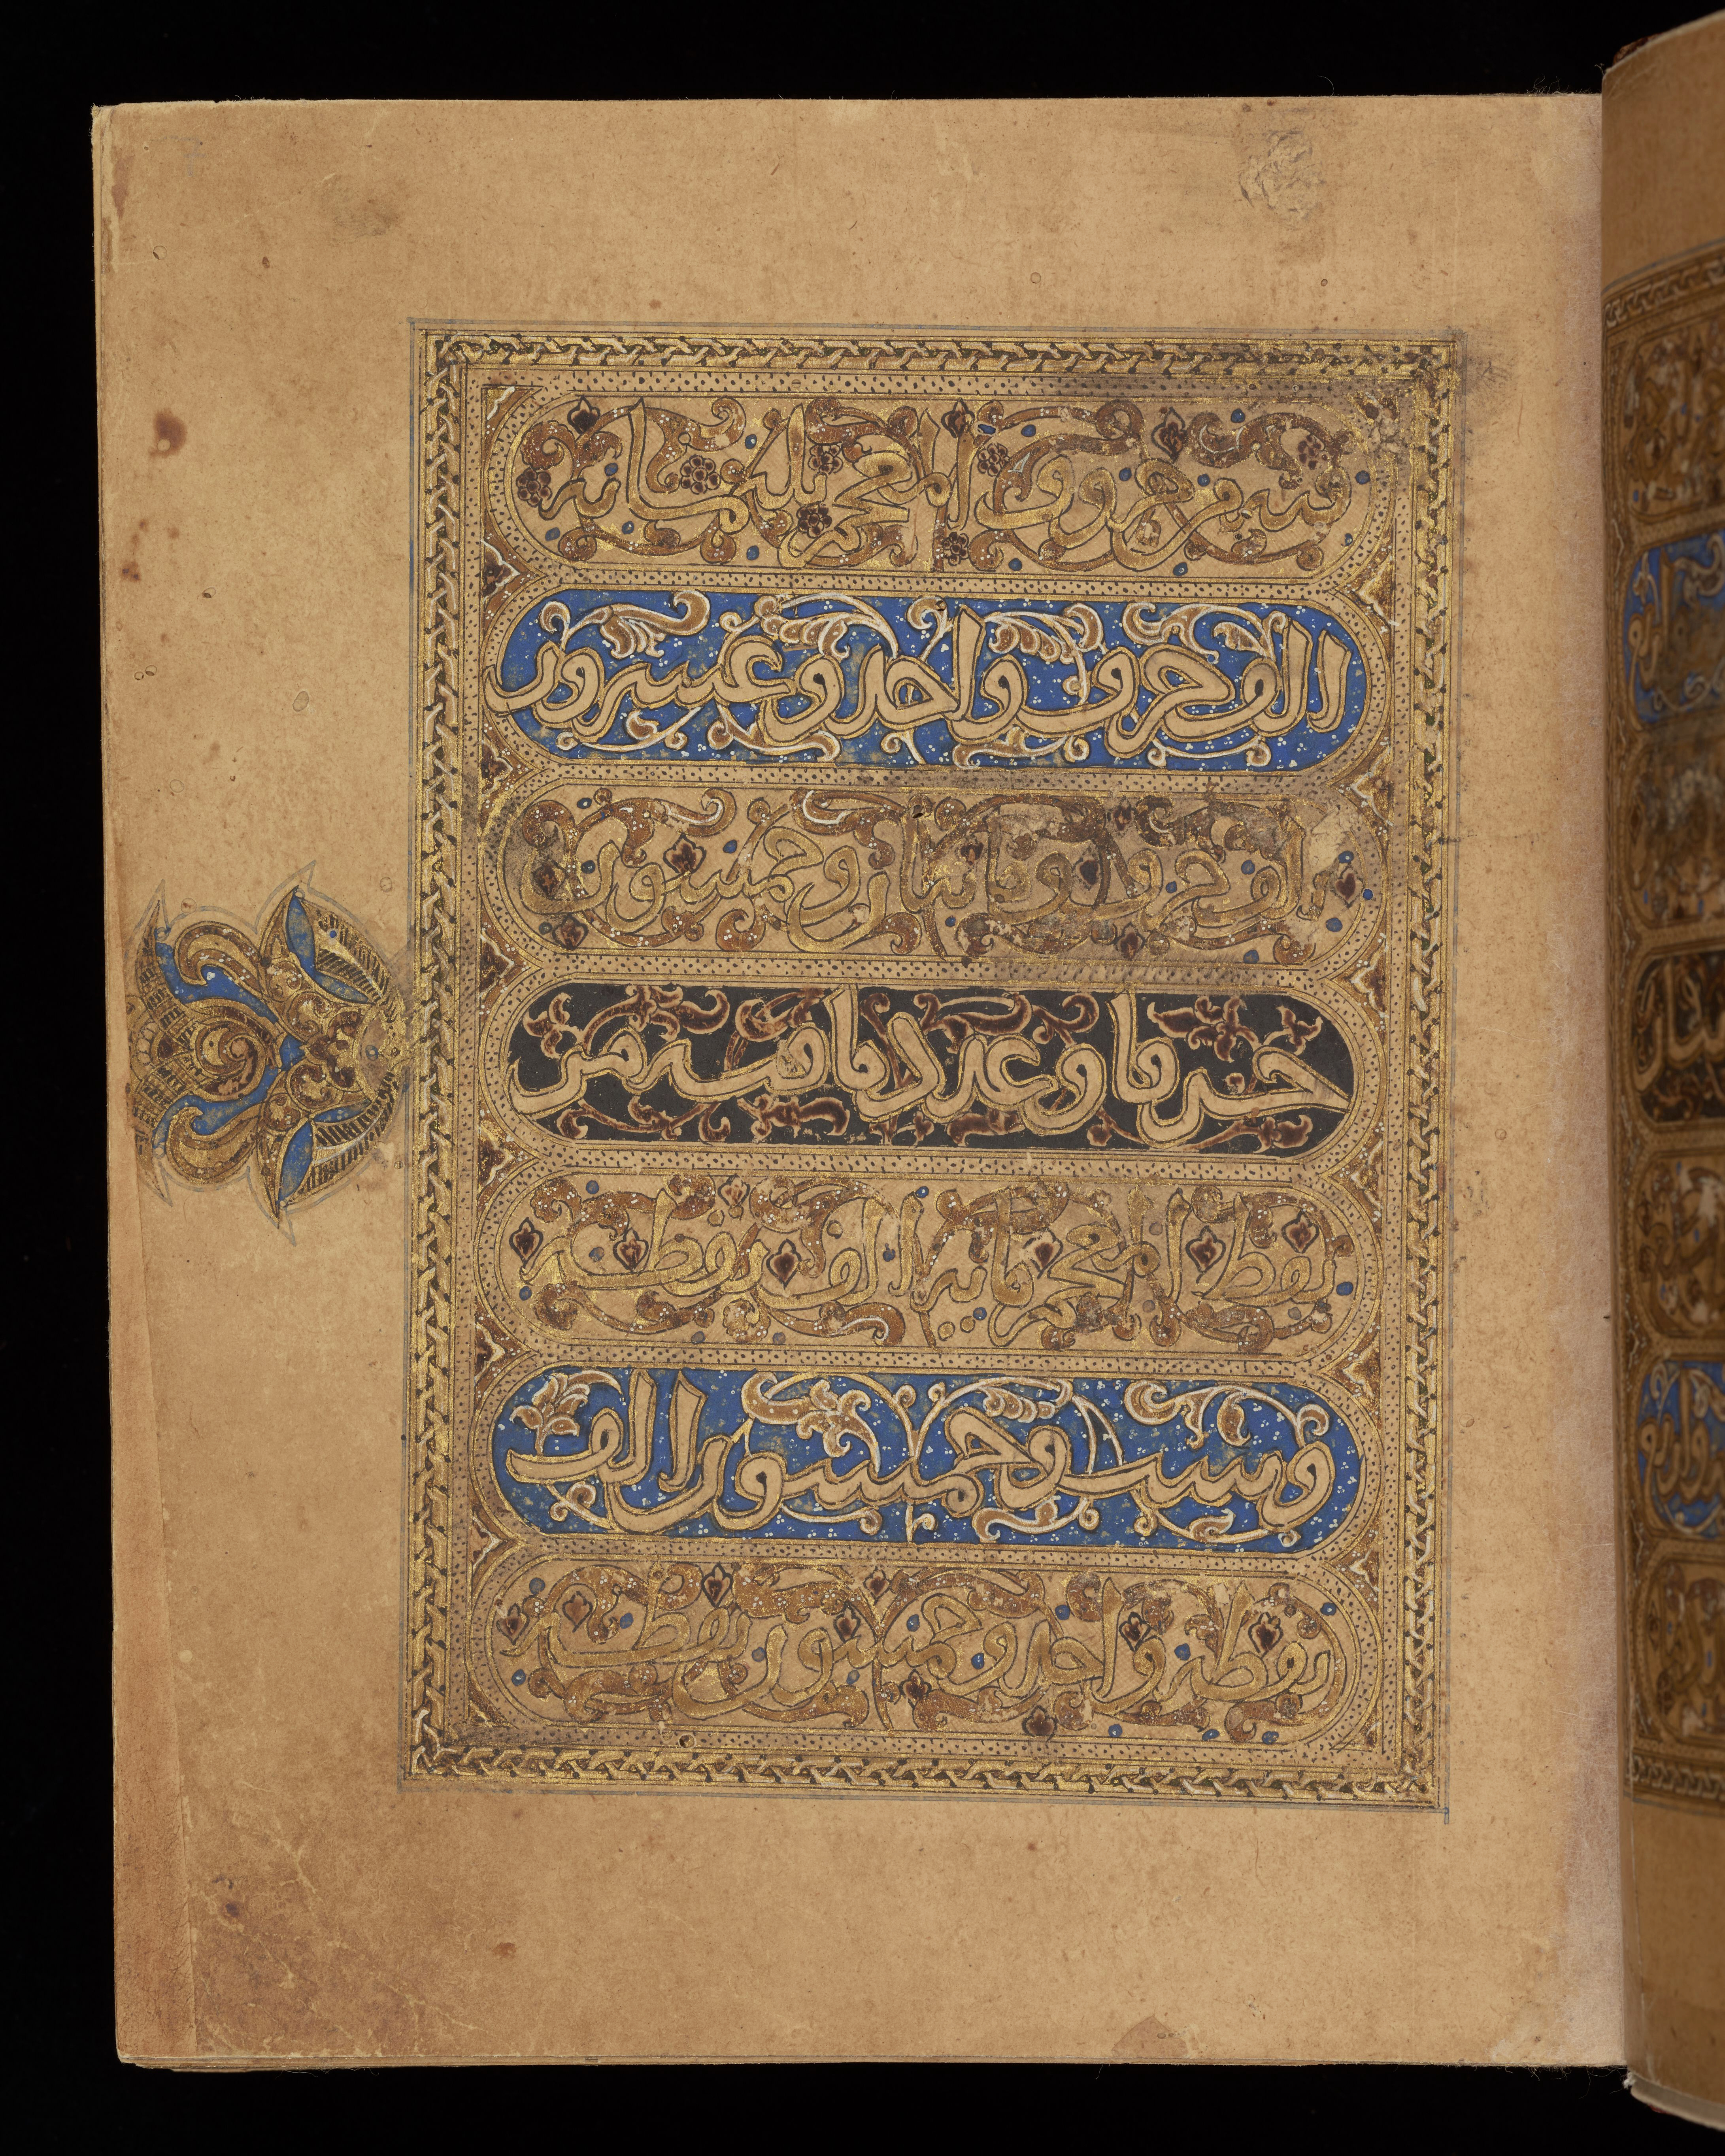 حروف المعجم ثلثمائة
الف حرف وواحد وعشرون
الف حرف ومائتان وخمسون
حرفا وعدد ما فيه من
نقط المعجم مائة الف نقطة
وست وخمسون الف
نقطة واحد وخمسون نقطة